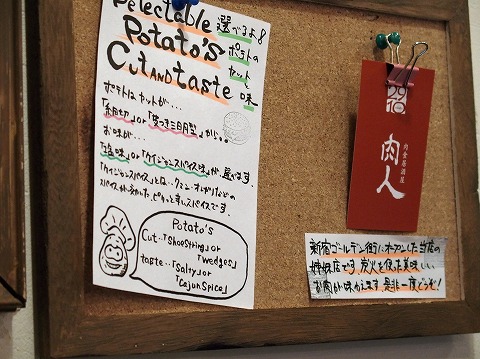 Delectable
Potato's
Cut AND taste
選べるよ!
ポテトの
カットと
味
ポテトはカットが…
「細切」or「皮つき三日月型」から…
お味が…
「塩味」or「ケイジャンスパイス味」が選べます。
「ケイジャンスパイス」とは…クミン・オレガノなどの
スパイスが入った、ピリッと辛いスパイスです。
Potato's
Cut…「ShoeString」or
「Wedges」
taste…「Salty」or
「CajunSpice」
肉食居酒屋
肉人
新宿ゴールデン街にオープンした当店の
姉妹店です。炭火を使った美味しい
お肉が味わえます。是非一度どうぞ!